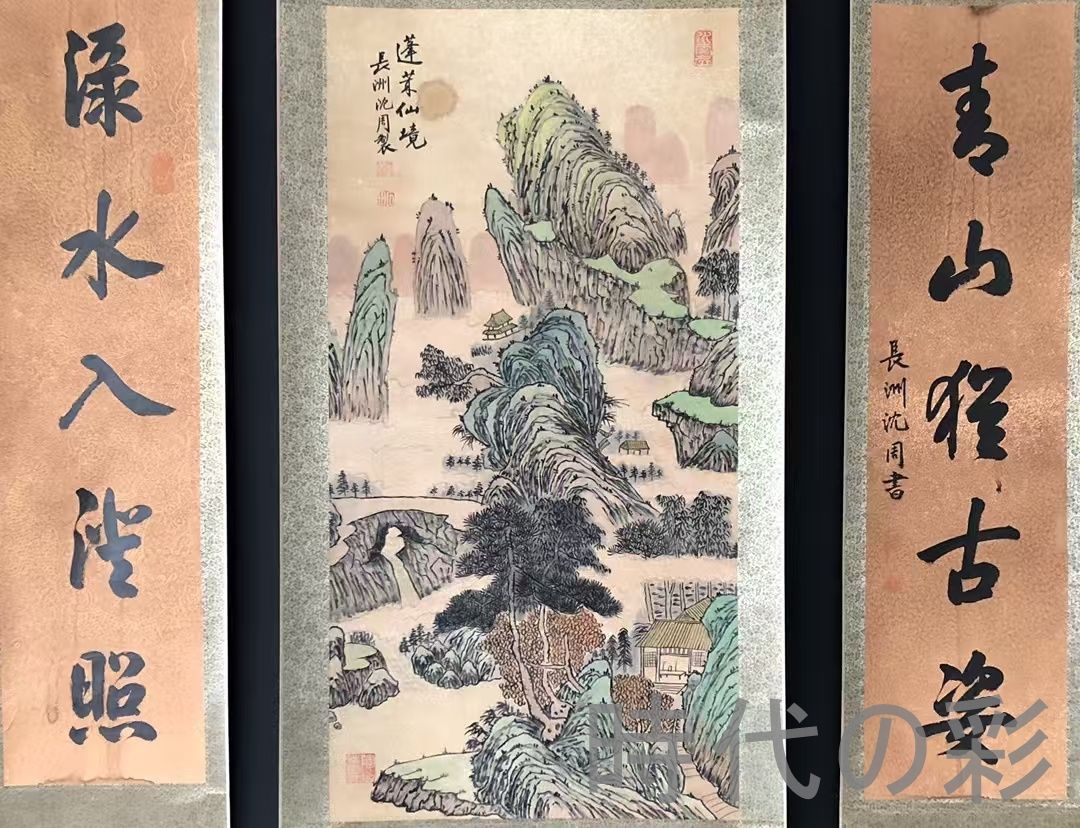 青山猶古姿
長洲沈周書
蓬萊仙境
長洲沈周製
渌水入澄照
時代の彩